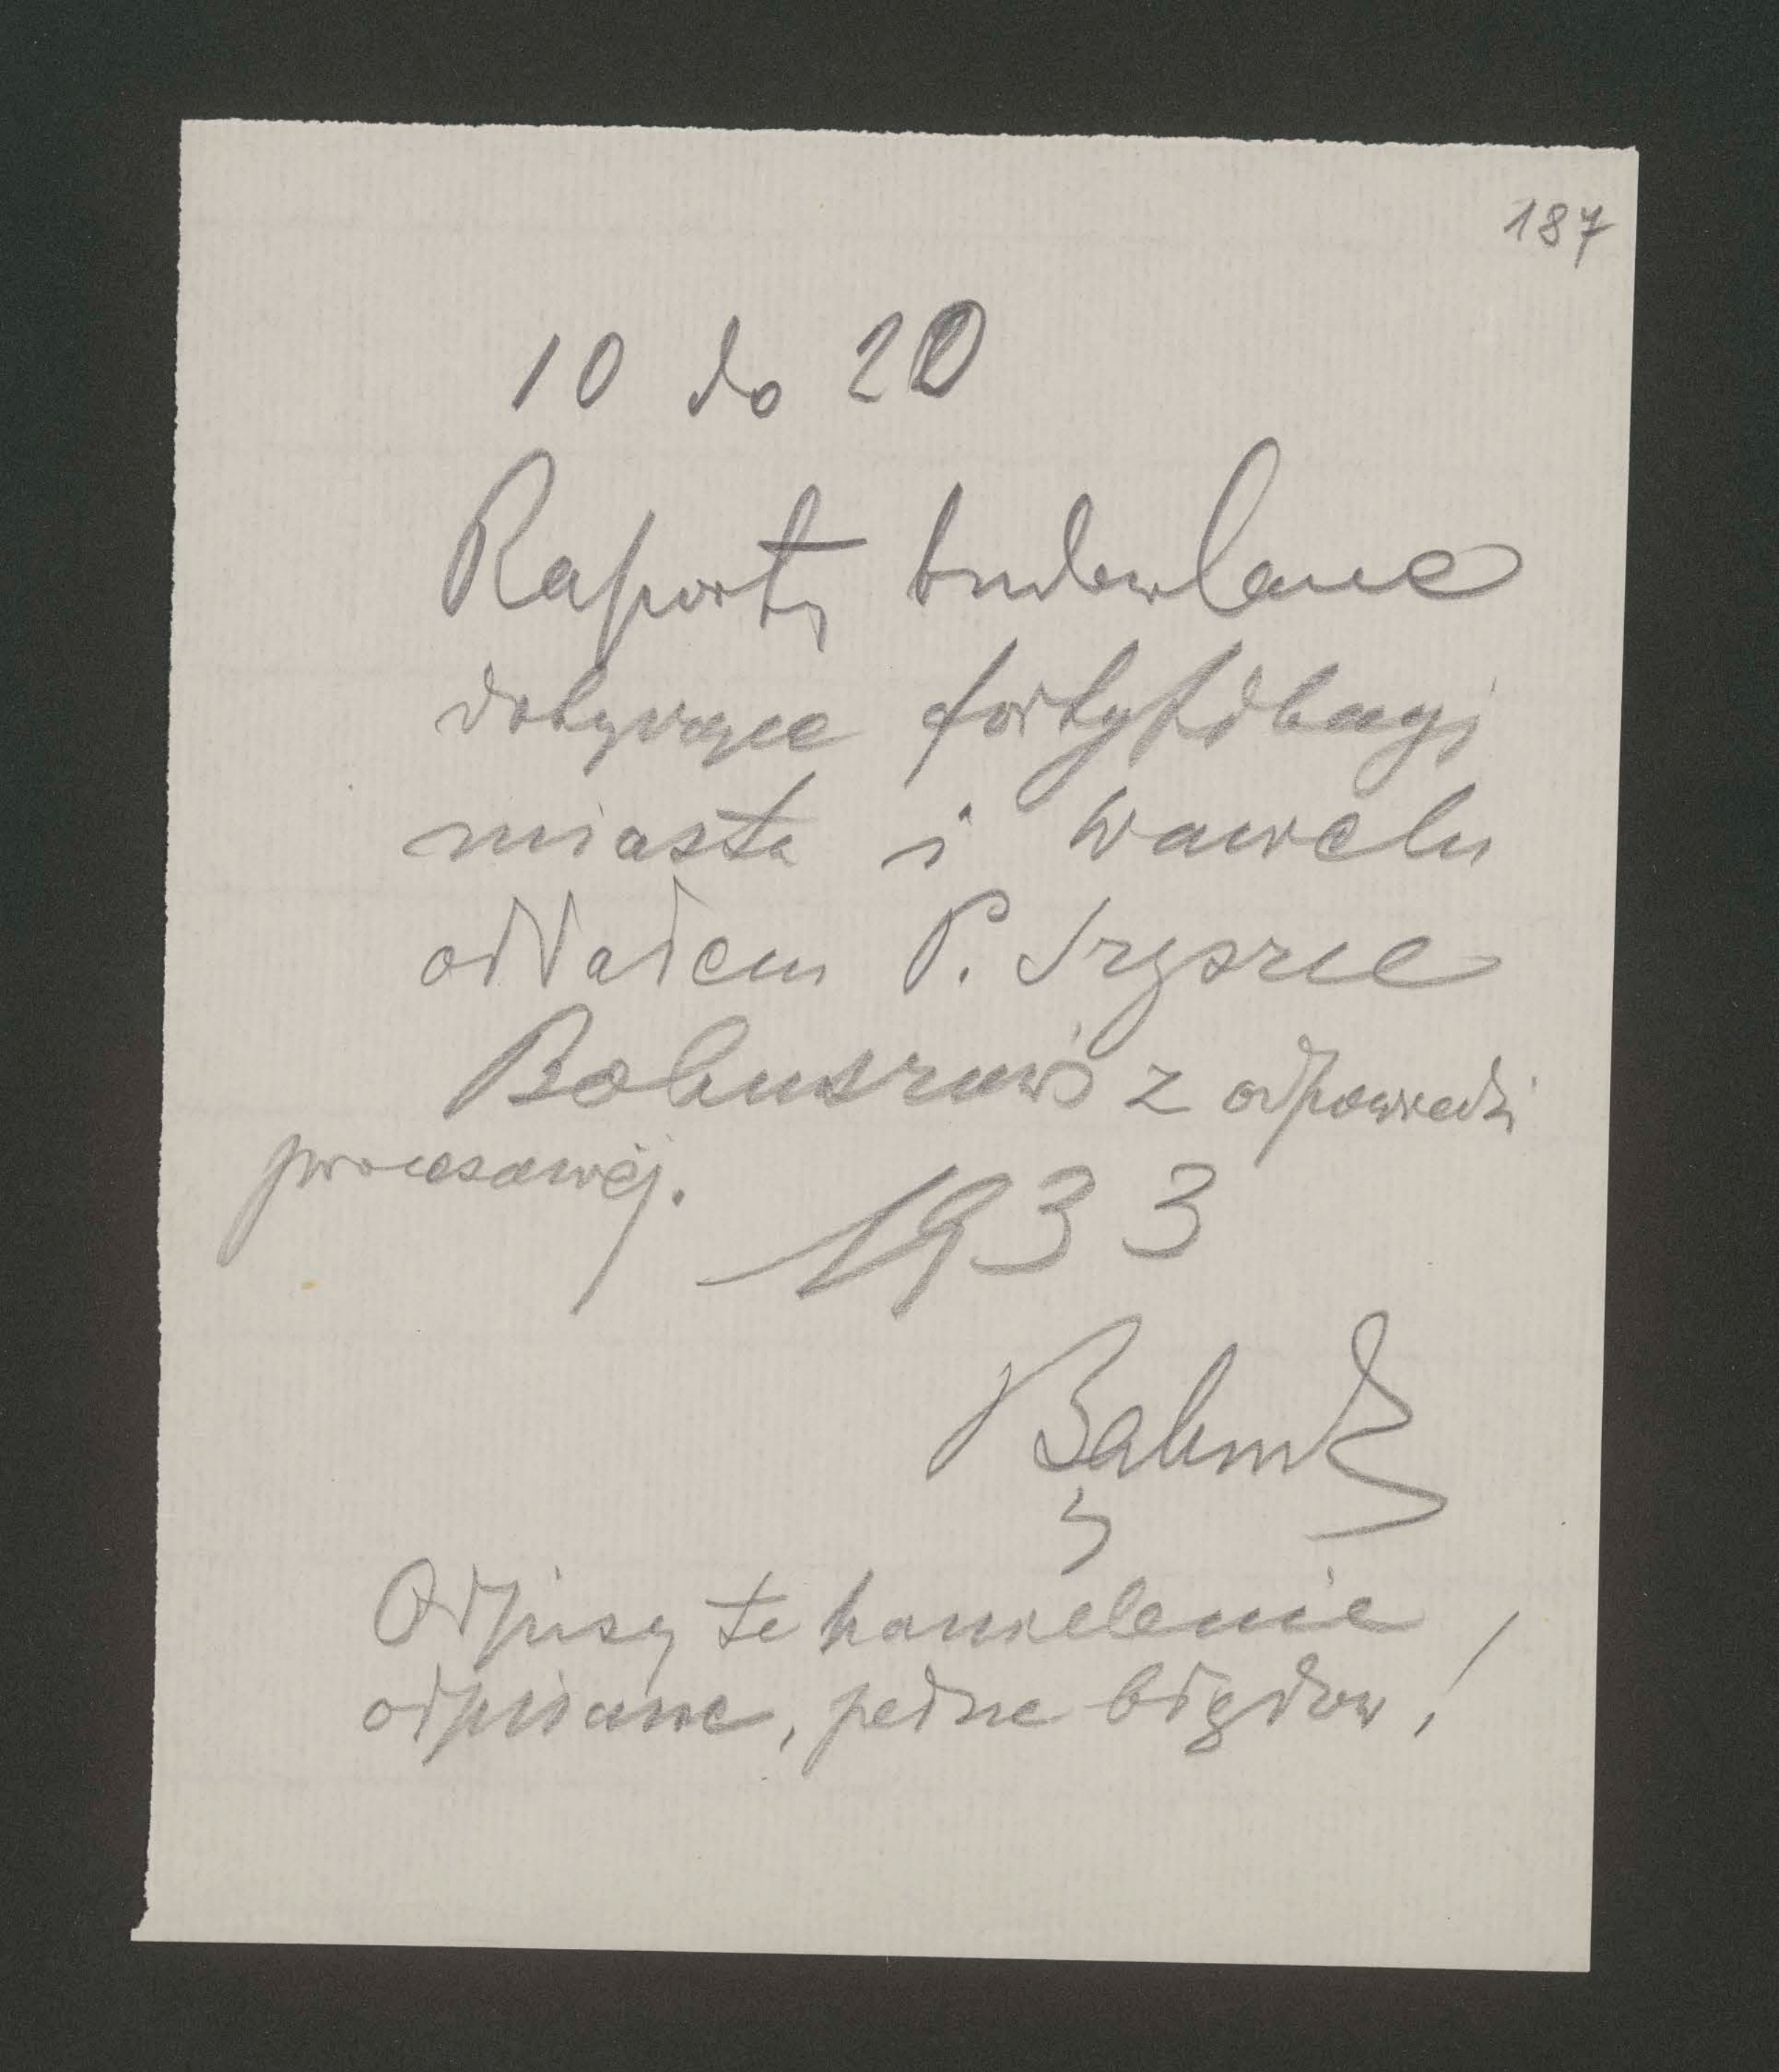 187
10 do 20
Raporty budowlane
dotyczące fortyfikacyi
miasta i Wawelu
oddałem P. Szyszce
Bohuszowi z odpowiedzi
procesowej.
1933
Odpisy te haniebnie
odpisane, pełne błędów!